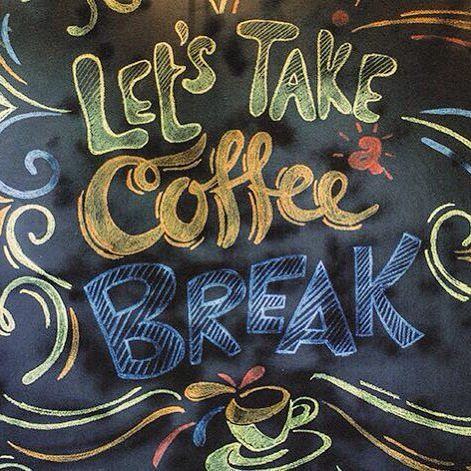 LET'S TAKE
a
Coffee
BREAK